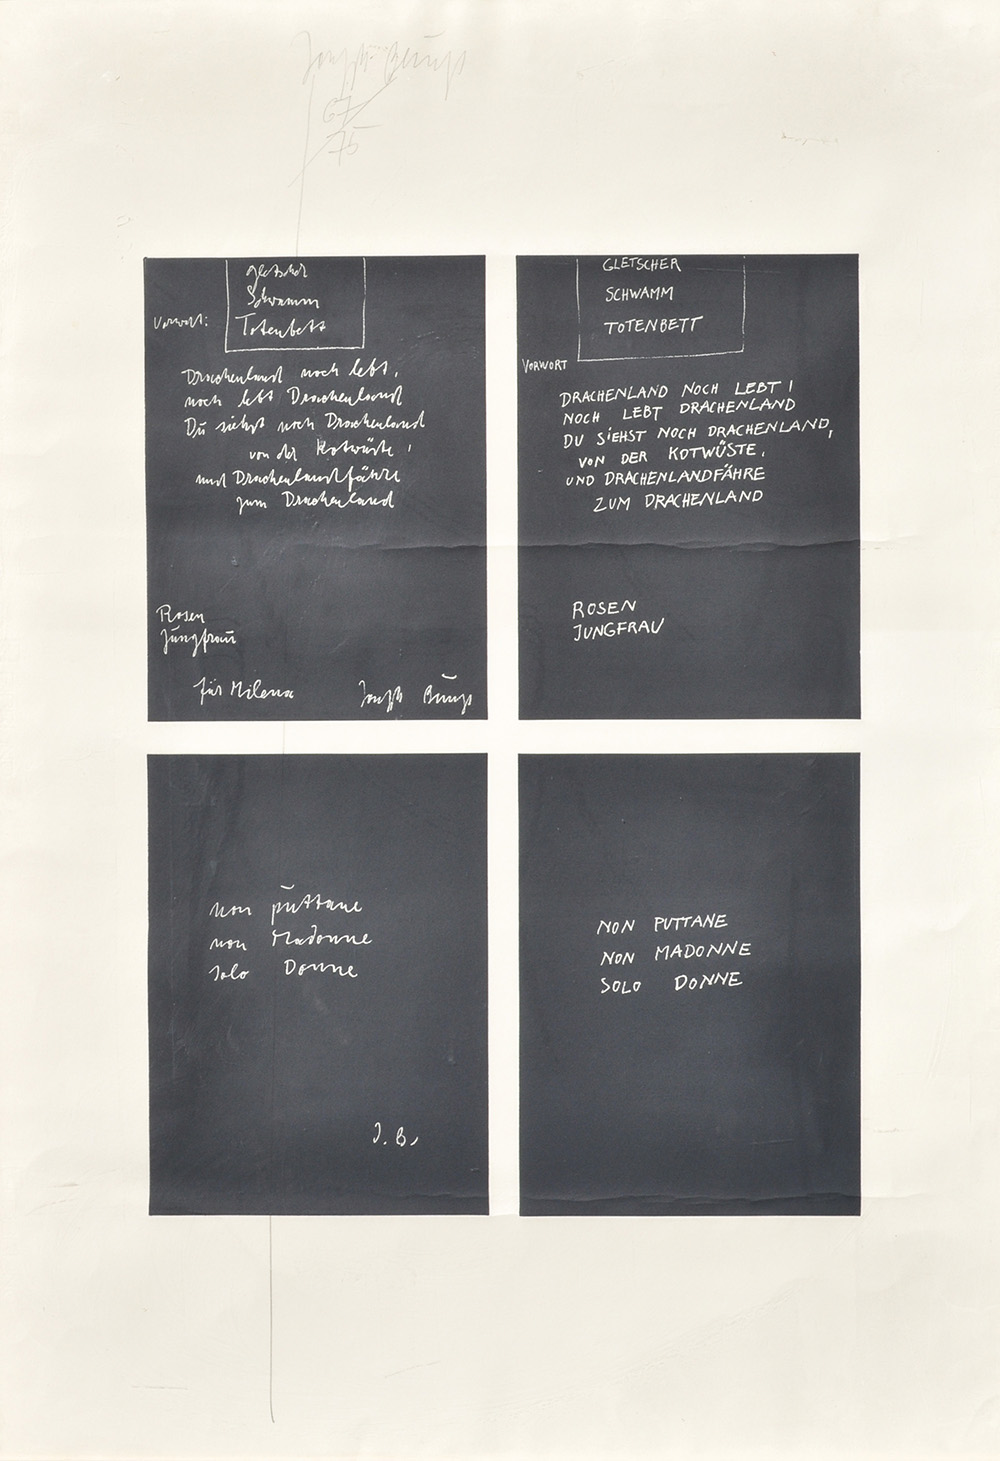 Joseph Beuys
67
75
gletscher
Schwamm
Totenbett
Vorwort:
Drachenland noch lebt,
noch lebt Drachenland
Du siehst noch Drachenland
von der Kotwüste,
und Drachenlandfähre
zum Drachenland
Rosen
Jungfrau
für Milena
Joseph Beuys
GLETSCHER
SCHWAMM
TOTENBETT
VORWORT
DRACHENLAND NOCH LEBT!
NOCH LEBT DRACHENLAND
DU SIEHST NOCH DRACHENLAND,
VON DER KOTWÜSTE,
UND DRACHENLANDFÄHRE
ZUM DRACHENLAND
ROSEN
JUNGFRAU
non puttane
non Madonne
solo Donne
J. B.
NON PUTTANE
NON MADONNE
SOLO DONNE